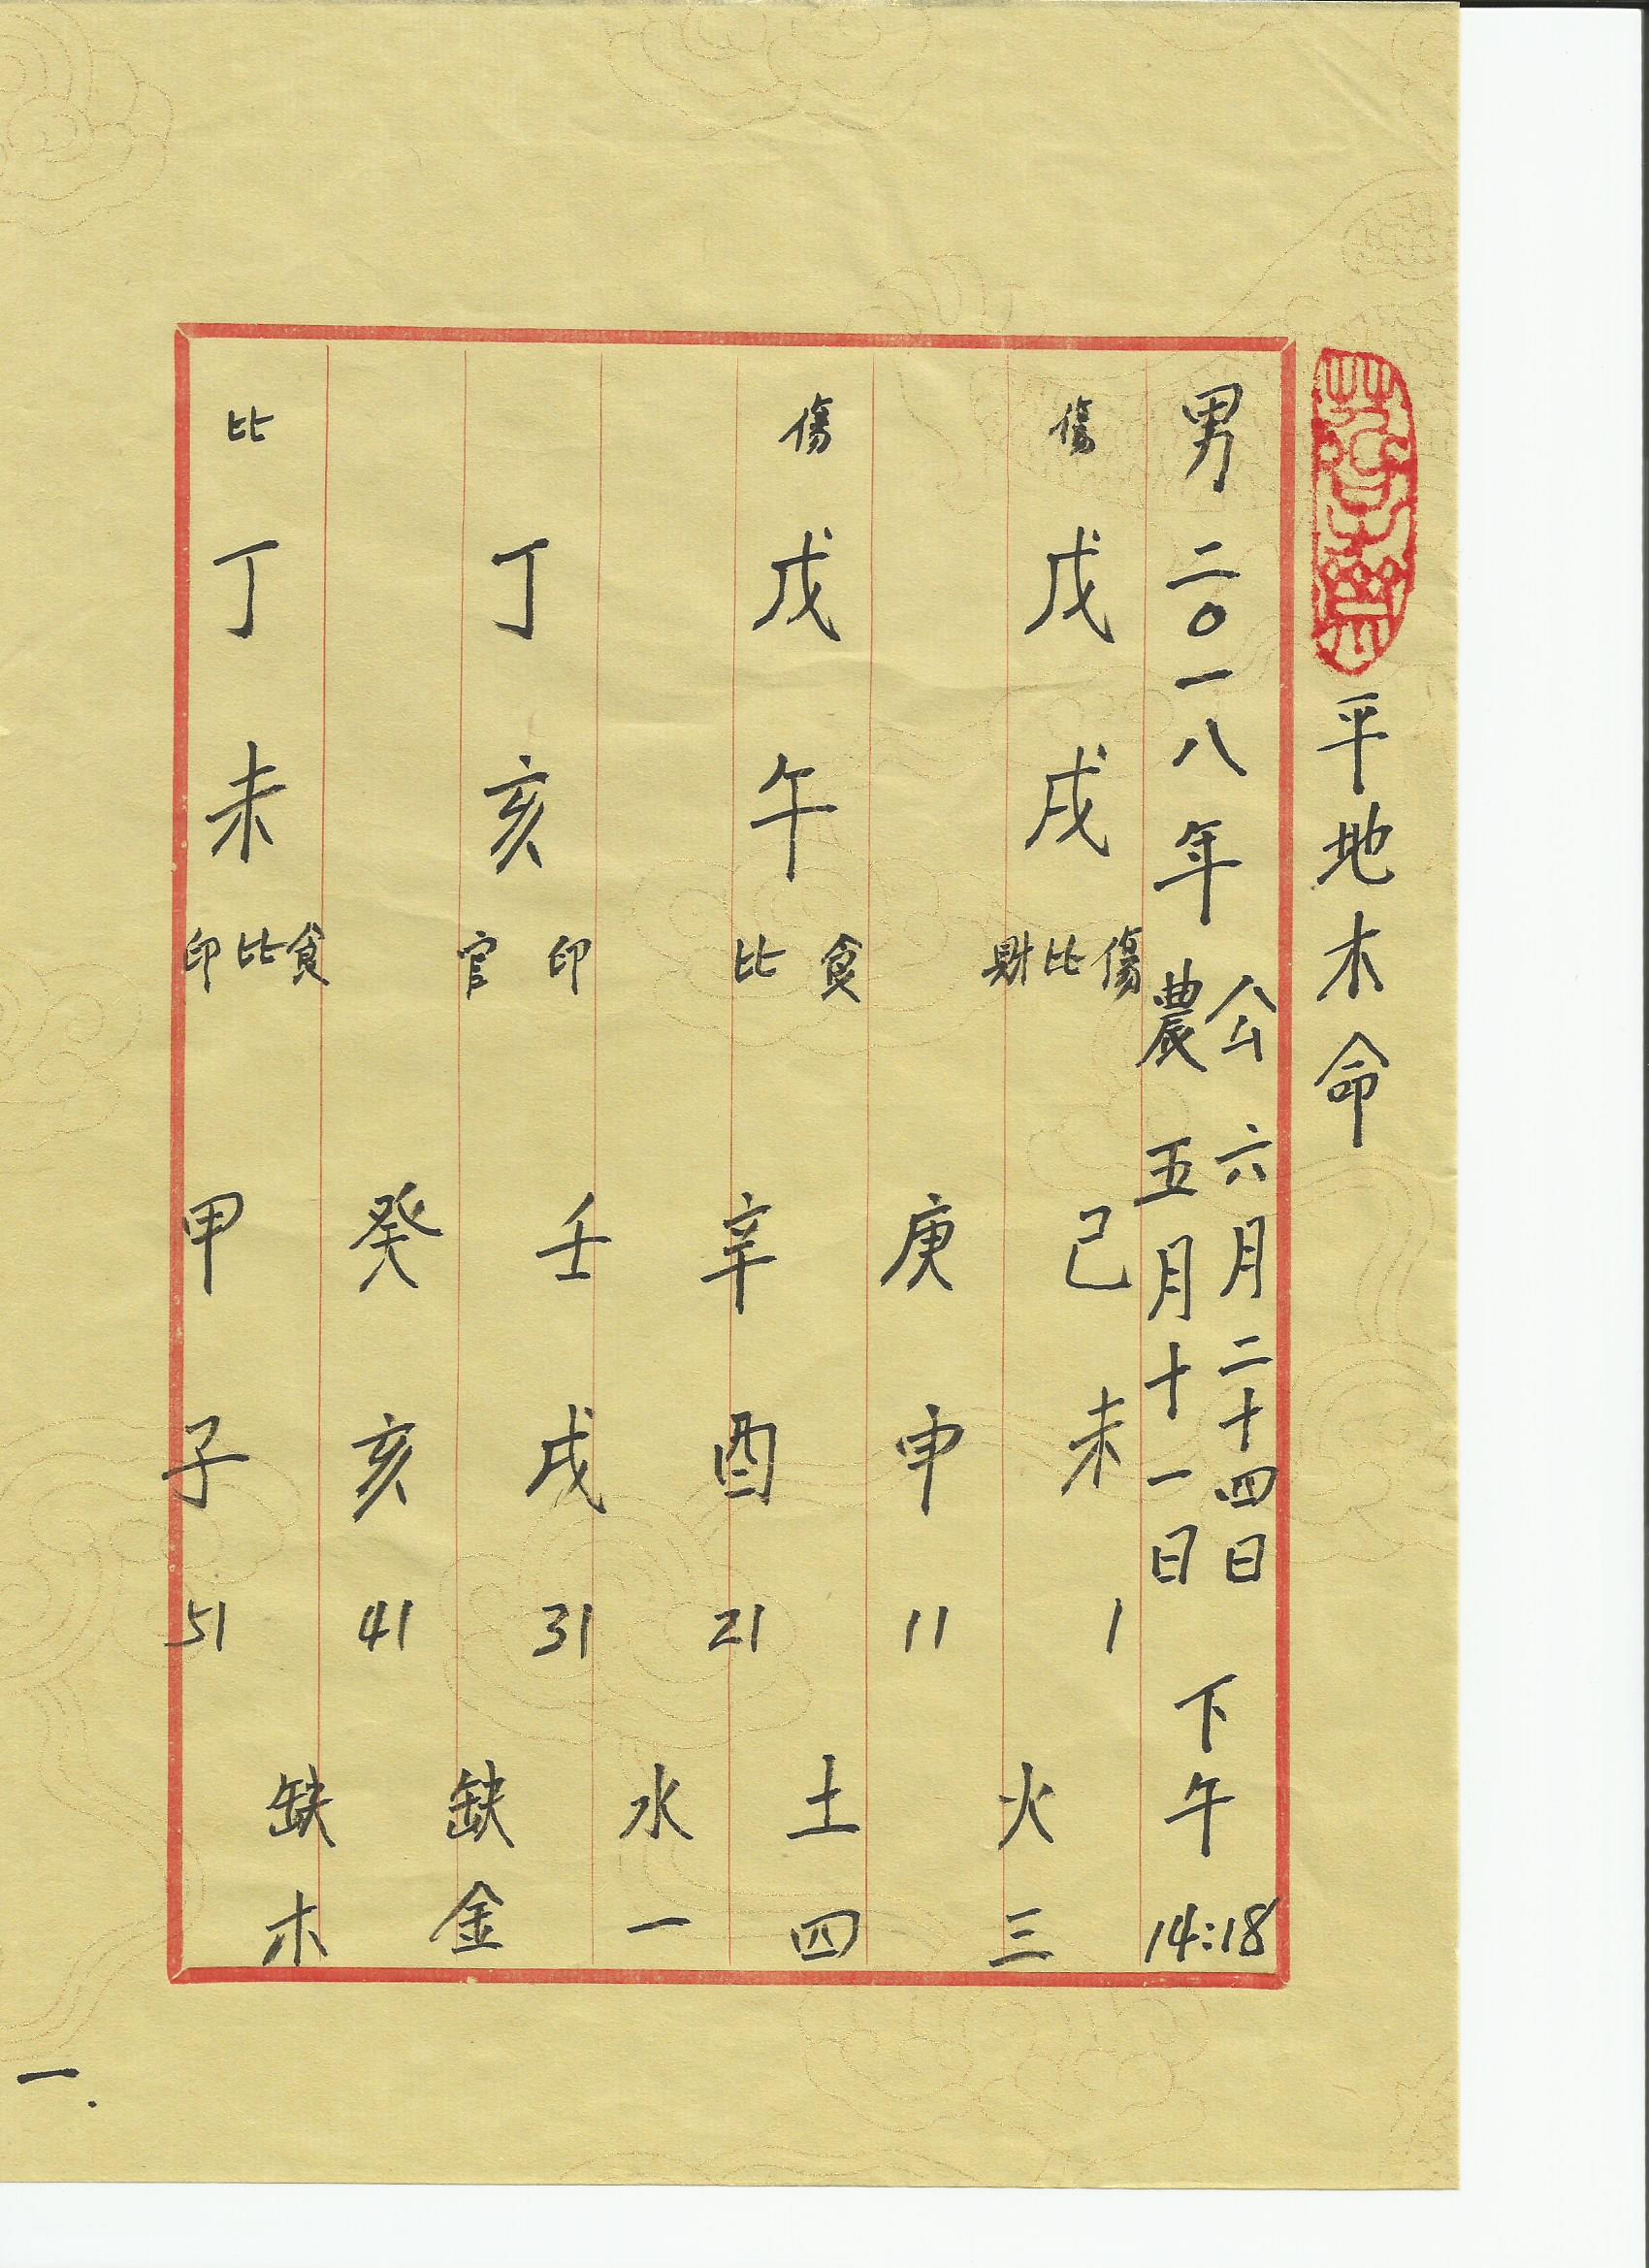 平地木命
男 二〇一八年 公 六月二十四日 下午 14:18
農 五月十一日
傷 戊 戌 財比傷
傷 戊 午 比食
丁 亥 官印
比 丁 未 印比食
己未 1
庚申 11
辛酉 21
壬戌 31
癸亥 41
甲子 51
火三
土四
水一
缺金
缺木
一.